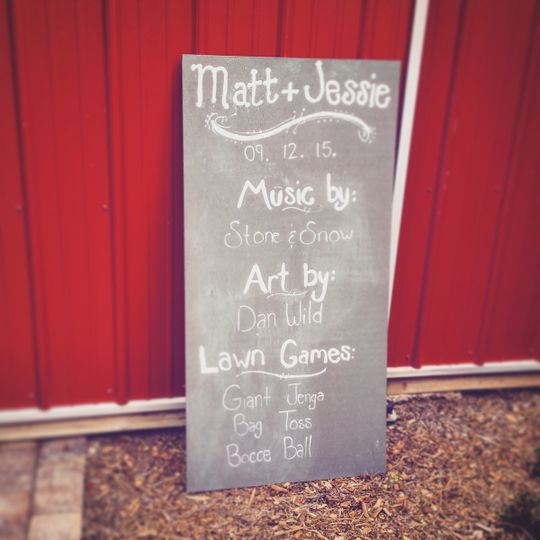 Matt + Jessie
09. 12. 15.
Music by:
Stone & Snow
Art by:
Dan Wild
Lawn Games:
Giant Jenga
Bag Toss
Bocce Ball